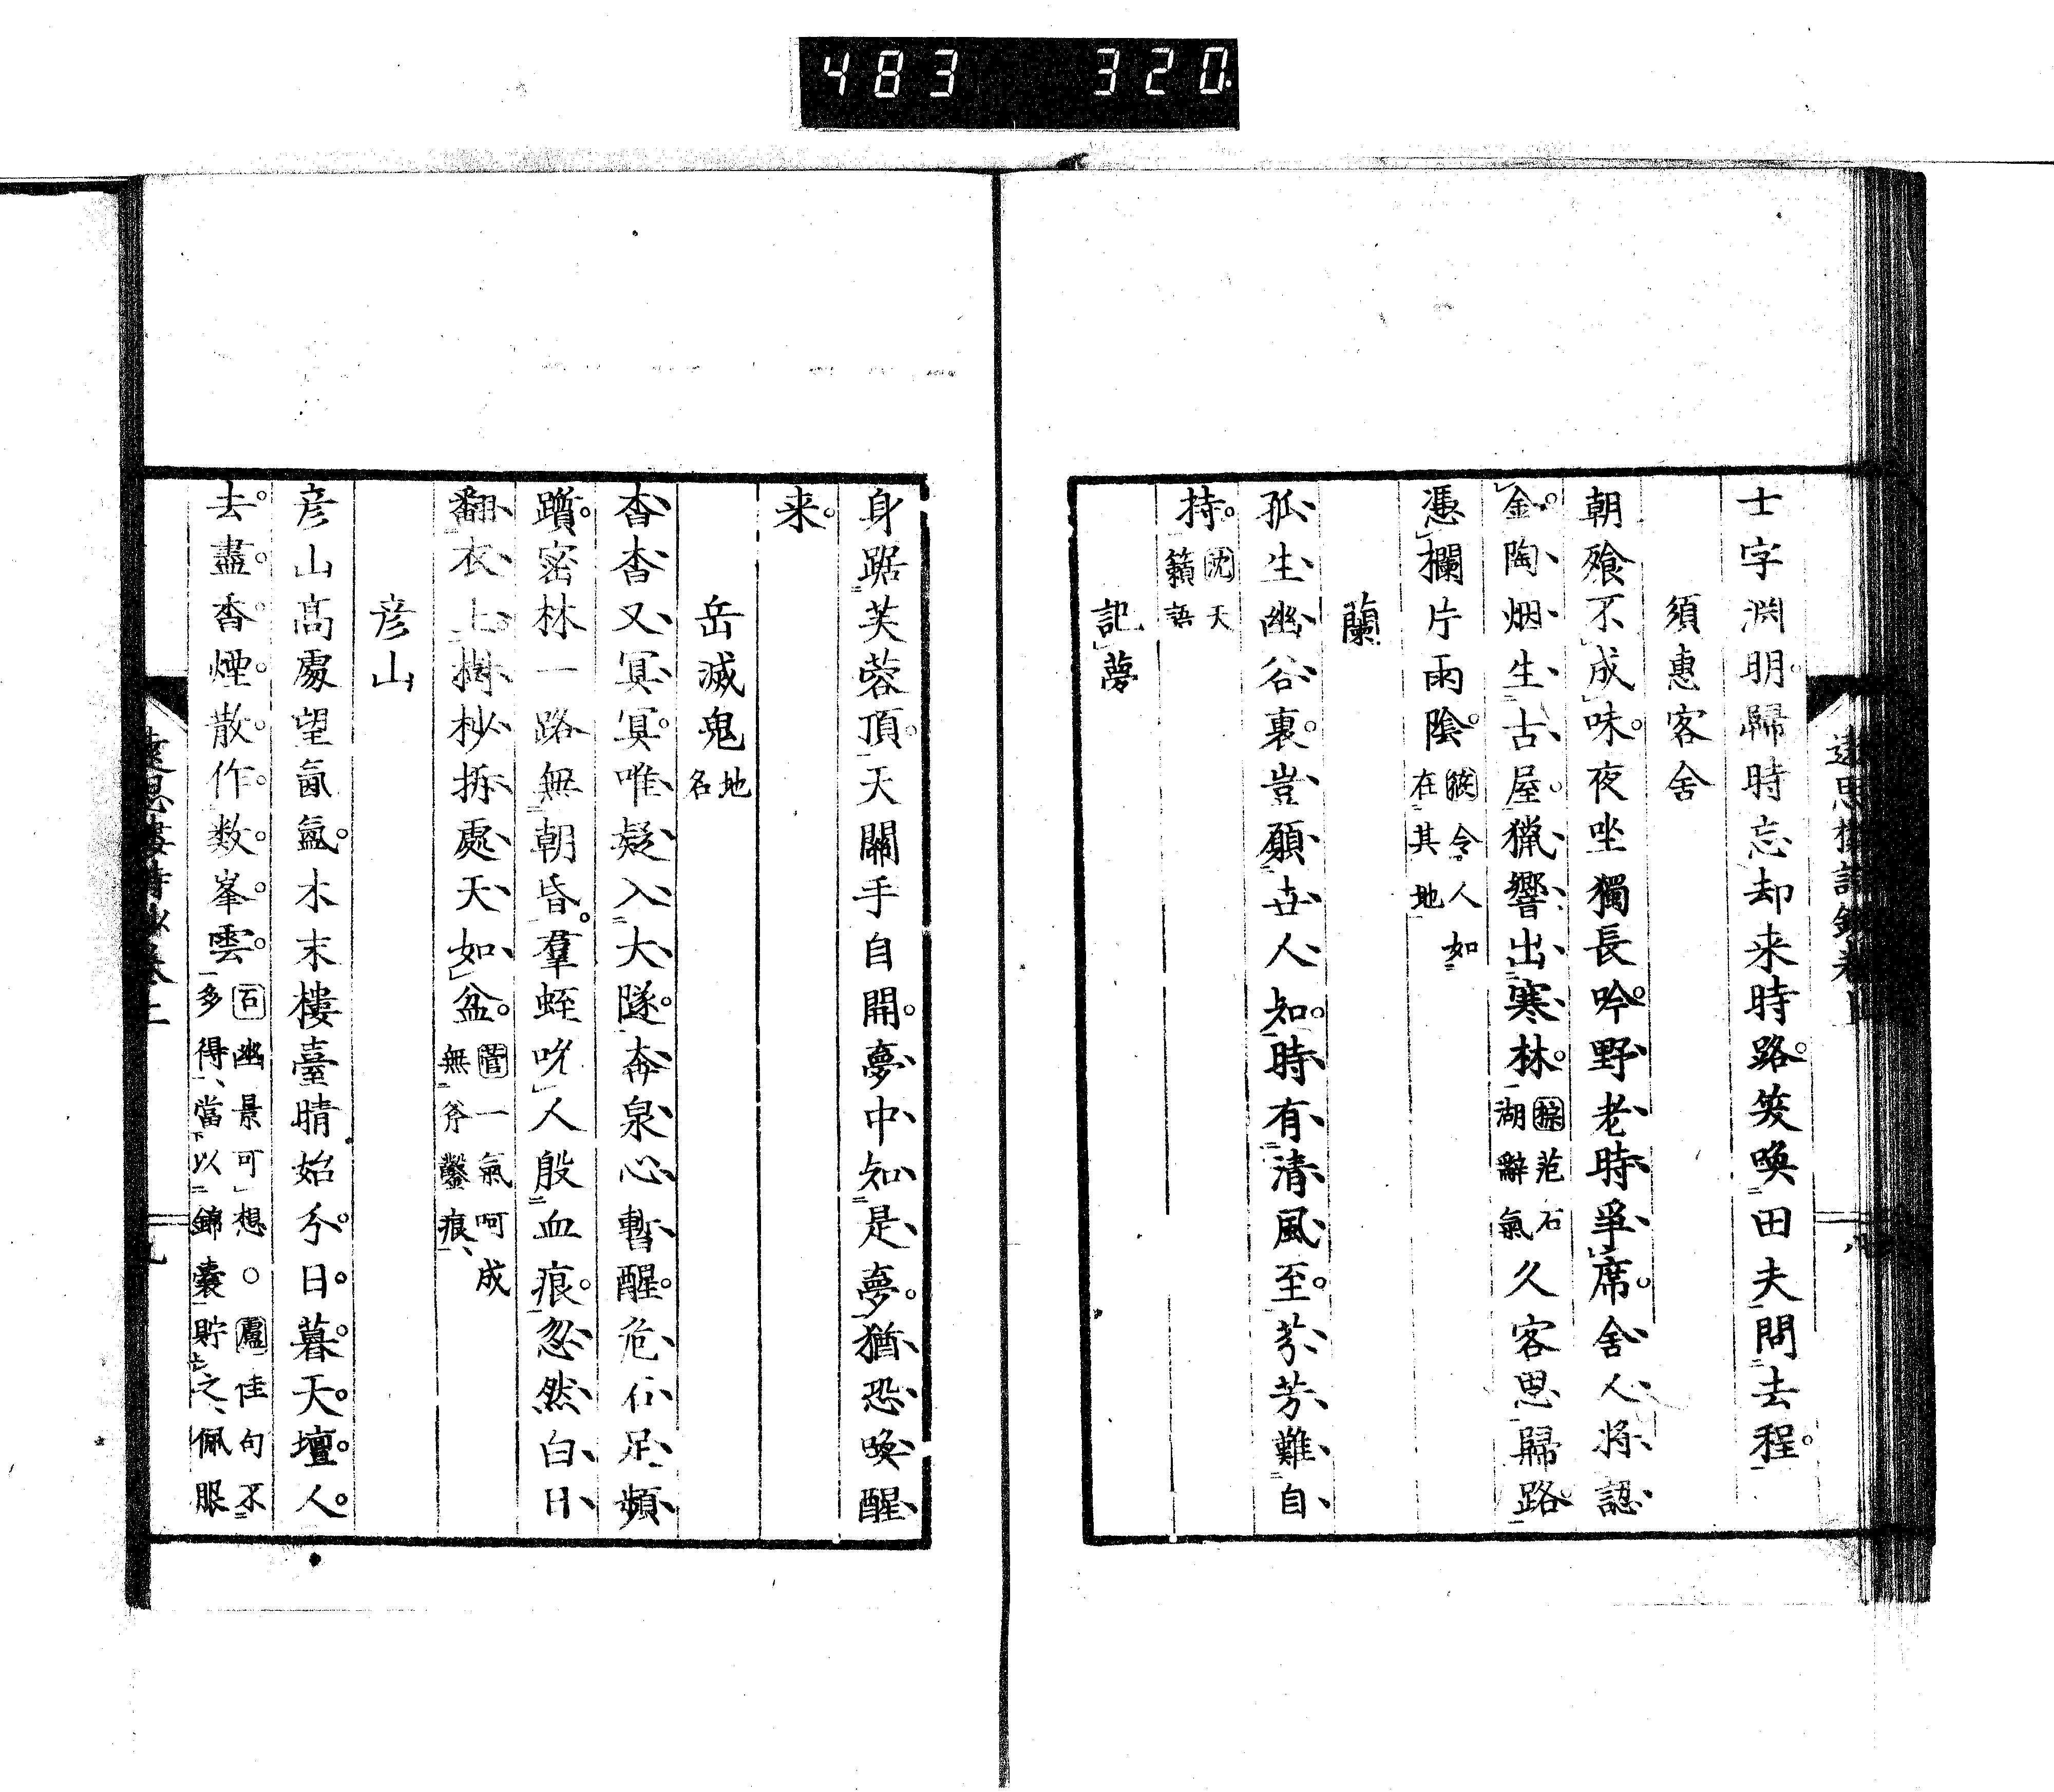 483 320
士字淵明歸時忘却来時路笑喚田夫問去程
須惠客舍
朝飱不成味夜坐獨長吟野老時爭席舍人将認
金陶烟生古屋猟響出寒林 范石湖辭氣 久客思歸路
憑欄片雨陰 令人如在其地
蘭
孤生幽谷裏豈願世人知時有清風至芬芳難自
持 沈 天籟語
記夢
身踞芙蓉頂天關手自開夢中知是夢猶恐喚醒
来
岳滅鬼 地名
杳杳又冥冥唯疑入大隧奔泉心暫醒危石足頻
躓密林一路無朝昏羣蛭吮人殷血痕忽然白日
翻衣上樹杪拆處天如盆 菅 一氣呵成無斧鑿痕
彦山
彦山高處望氤氳木末樓臺晴始分日暮天壇人
去盡香煙散作数峯雲 幽景可想○ 佳句不多得當以錦囊貯之佩服
遠思樓詩鈔卷二